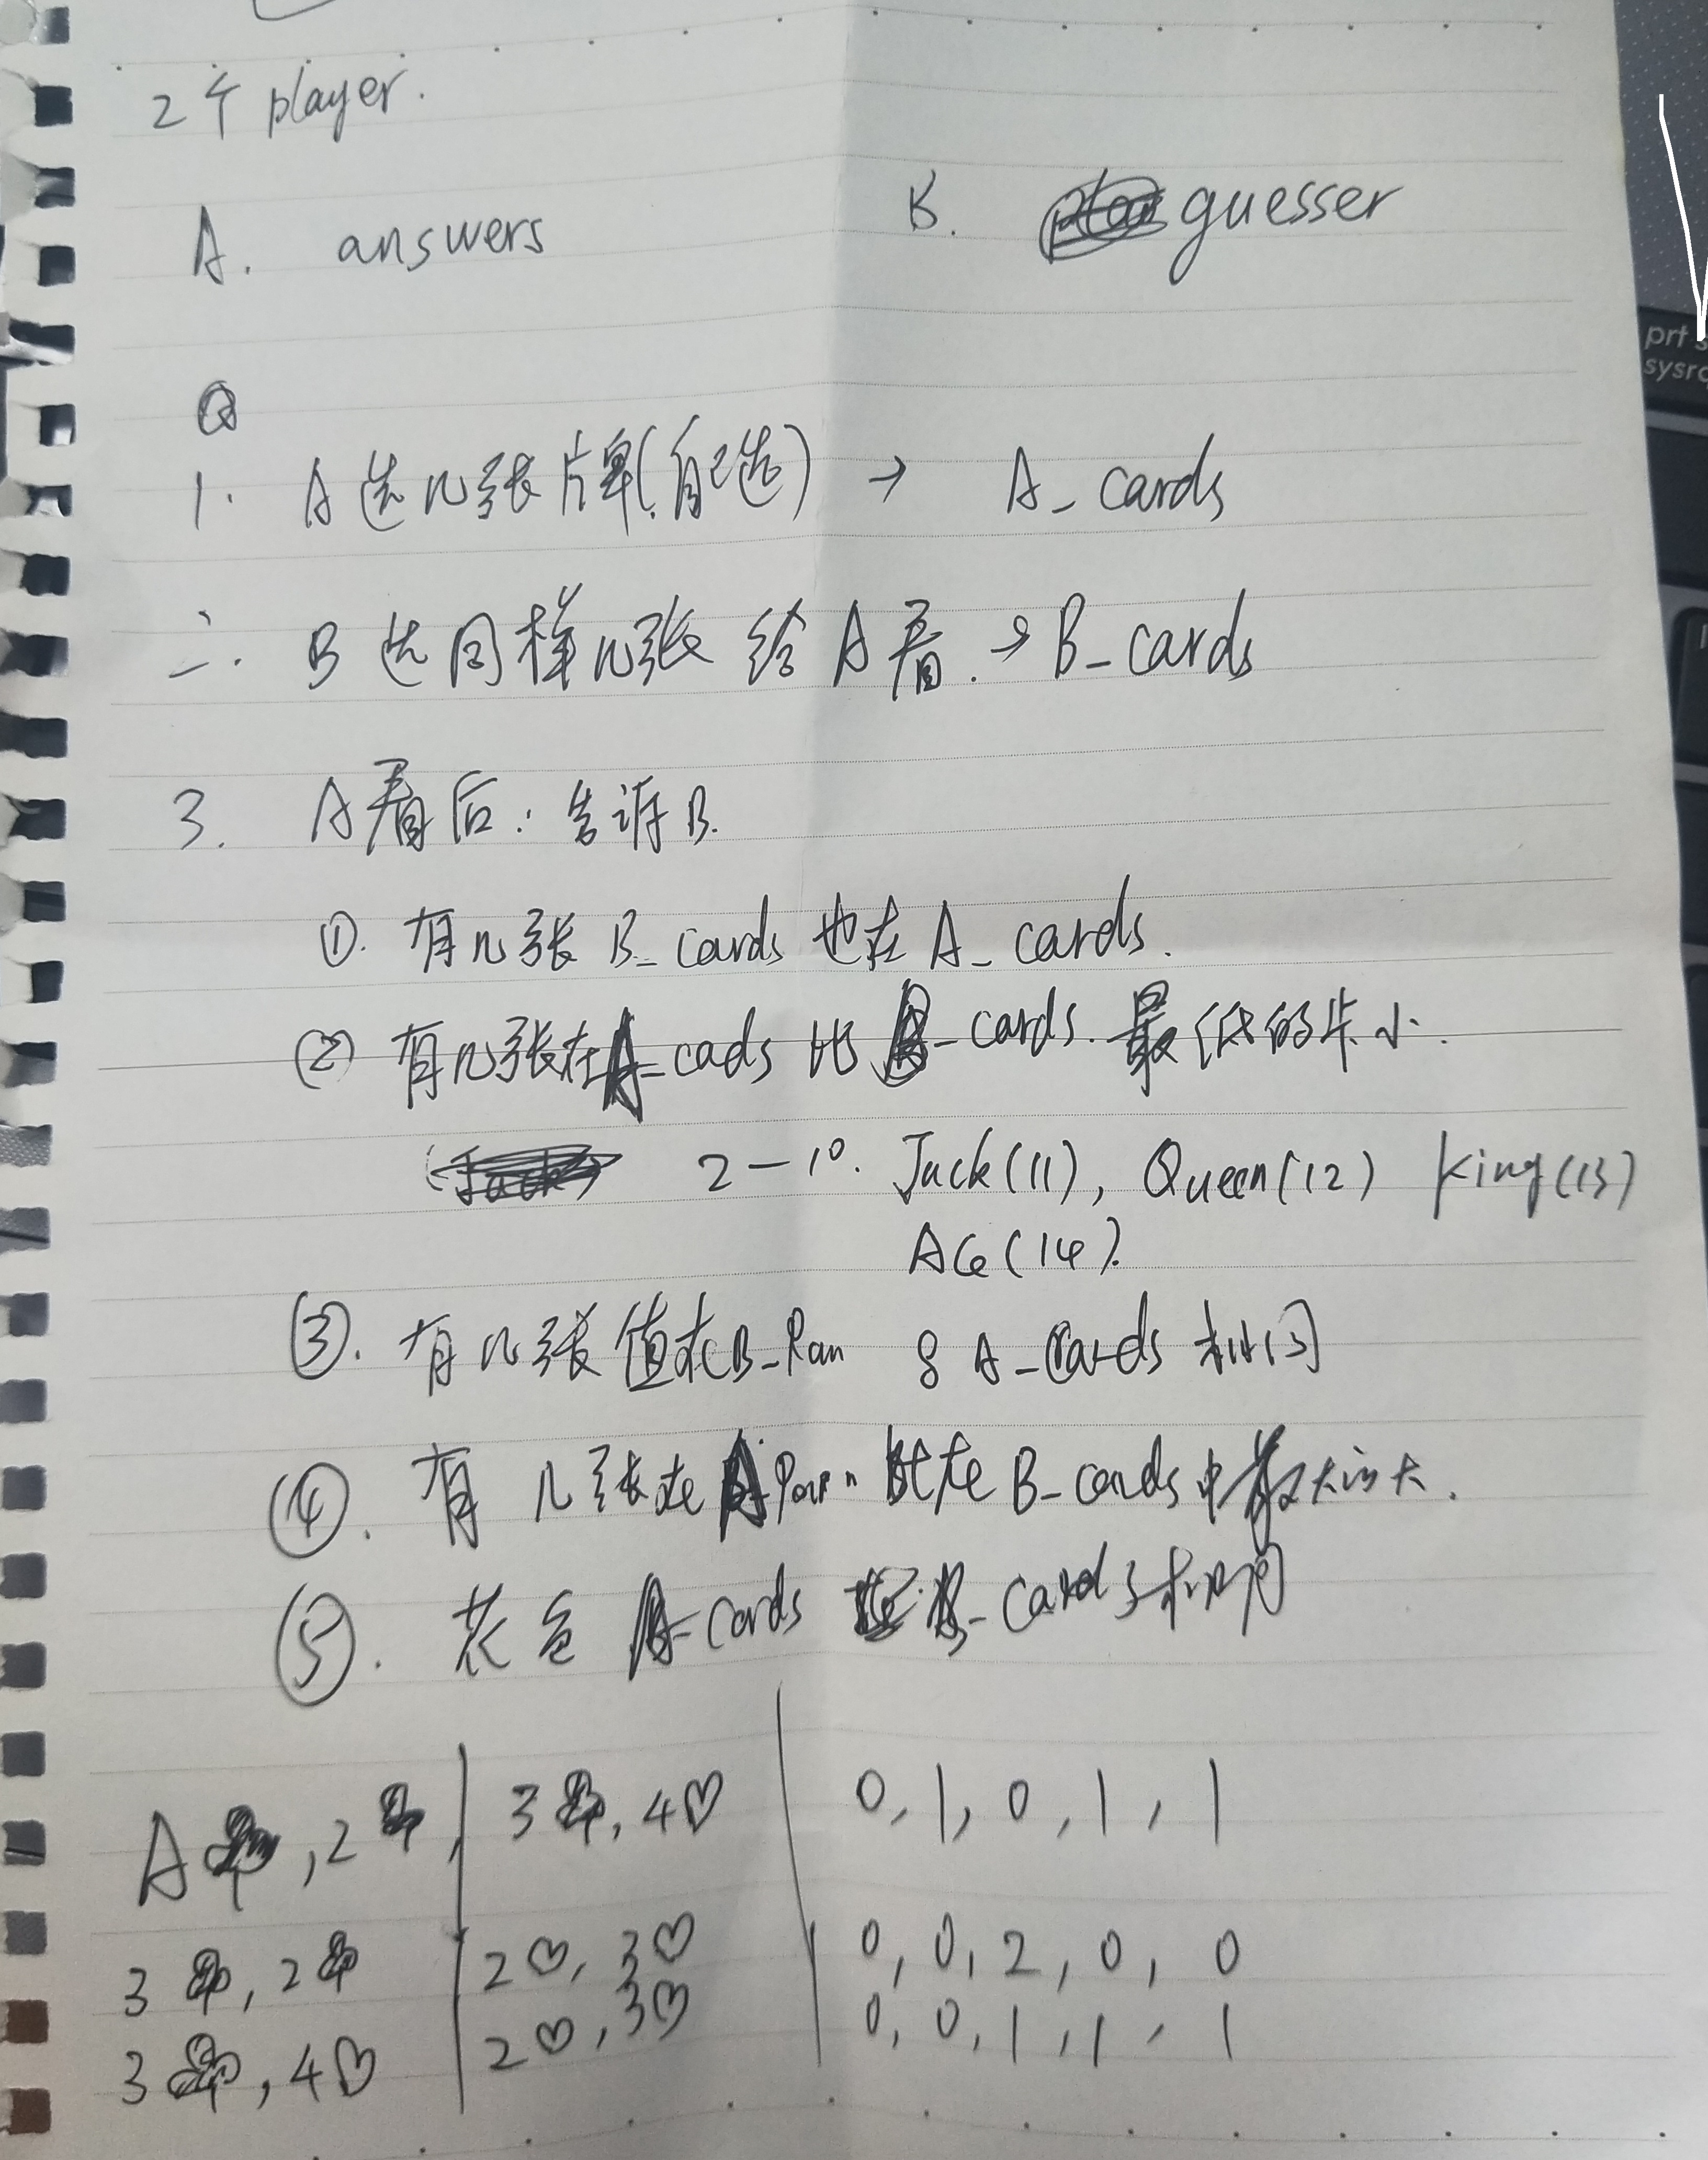 2个player.
A. answers B. guesser
Q
1. A选几张牌(自己选) → A_cards
二. B选同样几张 给A看. → B_cards
3. A看后: 告诉B.
①. 有几张B_cards也在A_cards.
② 有几张在A_cads 比B_cards.最低的卡小.
2-10. Jack(11), Queen(12) King(13)
Ace(14).
③. 有几张值在B_Ran 8 A_Cards 相同
④. 有几张在A 比在B_cards中最大的大.
⑤. 花色 A_cards B_cards相同
A♣, 2♣, | 3♣, 4♡ | 0, 1, 0, 1, 1
3♣, 2♣ | 2♡, 3♡ | 0, 0, 2, 0, 0
3♣, 4♡ | 2♡, 3♡ | 0, 0, 1, 1, 1
prt s
sysrq